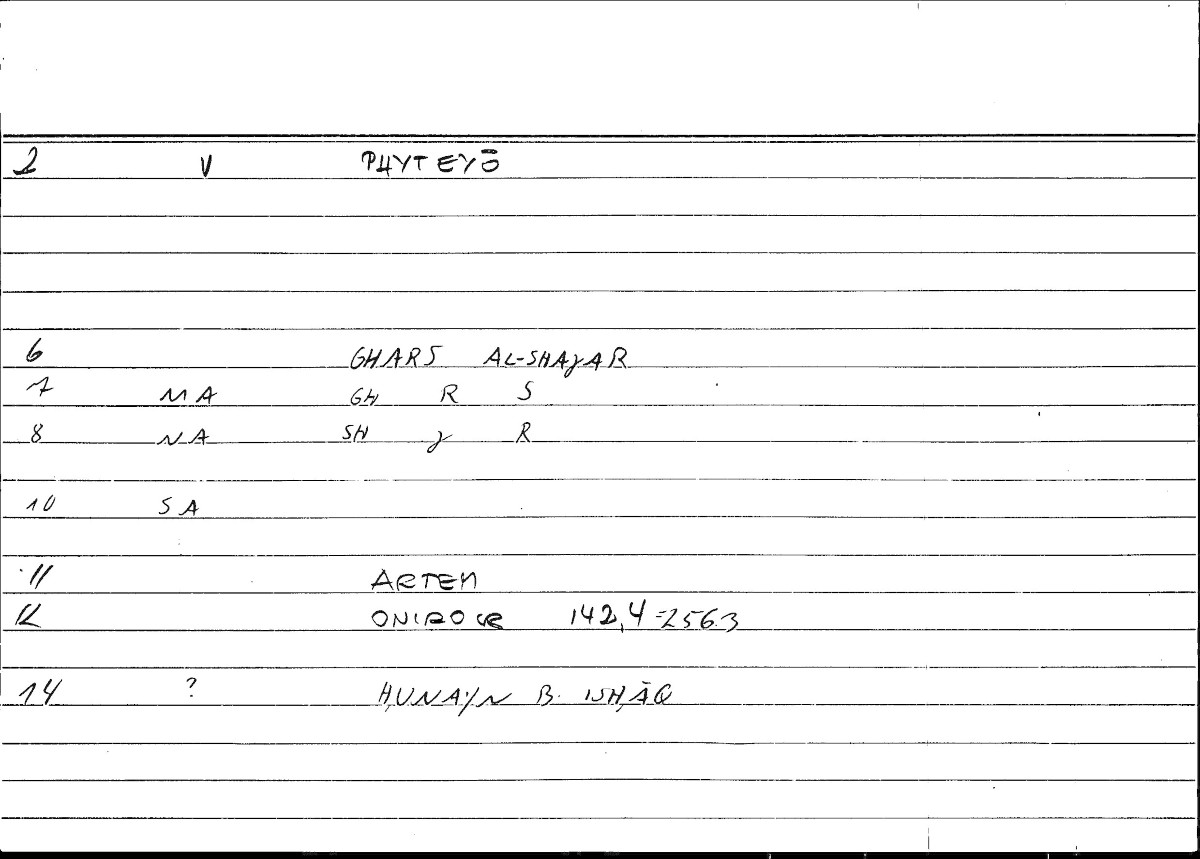 2 V PHYTEYŌ
6 GHARS AL-SHAJAR
7 MA GH R S
8 NA SH J R
10 SA
11 ARTEM
12 ONIROCR 142,4=256.3
14 ? H,UNAYN B. ISH,ĀQ